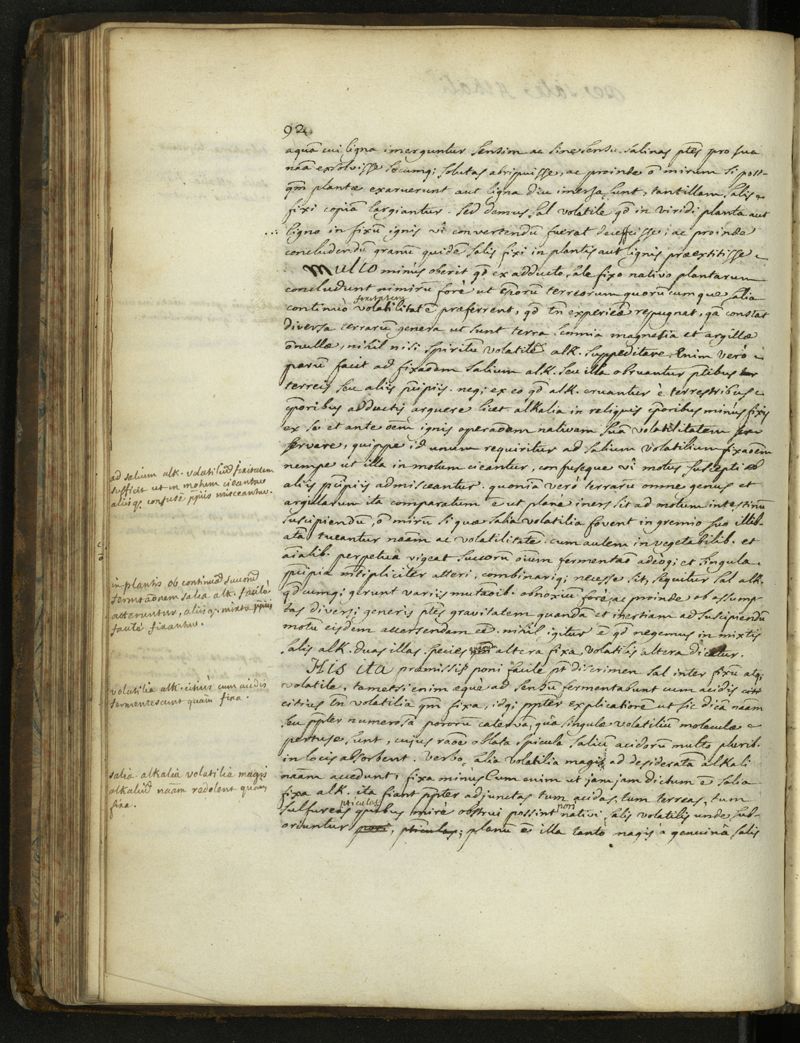 92.
aquā cui ligna imerguntur sensim ac sine sensu salinas ptēs pro sua
nāā exsolvisse secumq; solutas abripuisse, ac proinde ō mirum si post-
qm plantæ exaruerunt aut ligna diu imersa sunt, tantillam salis
fixi copiā largiantur. sed demus, sal volatile qd in viridi planta aut
ligno in fixū ignis vi convertendū fuerat ; ac proinde
concludendū granū quidē salis fixi in plantis aut lignis præextitisse
Multo minùs oberit qd ex adducto sale fixo nativo plantarum
concludunt nimirū forè ut corum terreorum quorumcumque salia
continuò volatilitatē præferrent, qd tn experiēā repugnat, qa constat
diversa terrarū genera ut sunt terra lemnia magnetia et argillæ
ōnullæ, nihil nisi spiritū volatilē alk. suppeditare. Enim verò
parū facit ad fixaōem salium alk. seu illa obruantur ptibus
terreis seu aliis pcipiis. neq; ex eo qd alk. eruantur è terrestribus
cporibus adductis arguere licet alkalia in reliquis cporibus minùs fixis
ex se et ante oēm ignis operaōem nativam suā volatilitatem
servare, quippe id unum requiritur ad salium volatilium fixaōem
nempe ut illa in motum cieantur, confuseque vi motus suscepti
aliis pcipiis admisceantur. quoniā verò terrarū omne genus et
argillarum ita comparatum ē ut planè iners sit ad motum intestinū
suscipiendū, ō mirū si quæ salia volatilia fovent in gremio suo illib-
atā tueantur nāam ac volatilitatē. cum autem in vegetabilib. et
aīalib. perpetua vigeat succorū oīum fermentaō adeòq; et singula
pcipia mltipliciter atteri, combinariq; necesse sit, sequitur sal alk.
qdcumq; gerunt variis mutaōib. obnoxiū forè, ac proinde ob assump-
tas diversi generis ptēs gravitatem quandā et inertiam ad suscipiendū
motū eisdem accersendam eē. nihil igitur ē qd negemus in mixtis
salis alk. duas illas species altera fixa, volatilis altera dicetur.
His ita præmissis poni facilè pt discrimen sal inter fixū atq;
volatile, tametsi enim eque ad sensū fermentabunt cum acidis
citiùs tn volatilia qm fixa, idq; ppter explicatiorē ut sic dicā nāam
seu ppter numerosā pororū catervā, quâ singulæ volatiliū moleculæ
pertusæ sunt, cujus raōe oblata spicula salium acidorū multo plurib.
in locis absorbent. verbo, alia volatilia magis ad desideratā alkali
nāam accedunt, fixa minùs cum enim ut jam jam dictum ē salia
fixa alk. ita fiant ppter adjunctas tum acidas, tum terreas, tum
sulfureas pticulas quibus mirè obstrui possint pori nativi, salis volatilis unde sub-
oriuntur , pticulas; planū ē illa tantò magis à genuinâ salis
ad salium alk. volatiliū fixitatem
sufficit ut in motum cieantur
aliisq; confusè ppiis misceantur.
in plantis ob continuā succorū
fermtaōnem salia alk. facilè
atteruntur, aliisq; mixta ppiis
facilè fixantur.
volatilia alk. citiùs cum acidis
fermentescunt quàm fixa.
salia alkalia volatilia magis
alkaliū nāam redolent quàm
fixa.